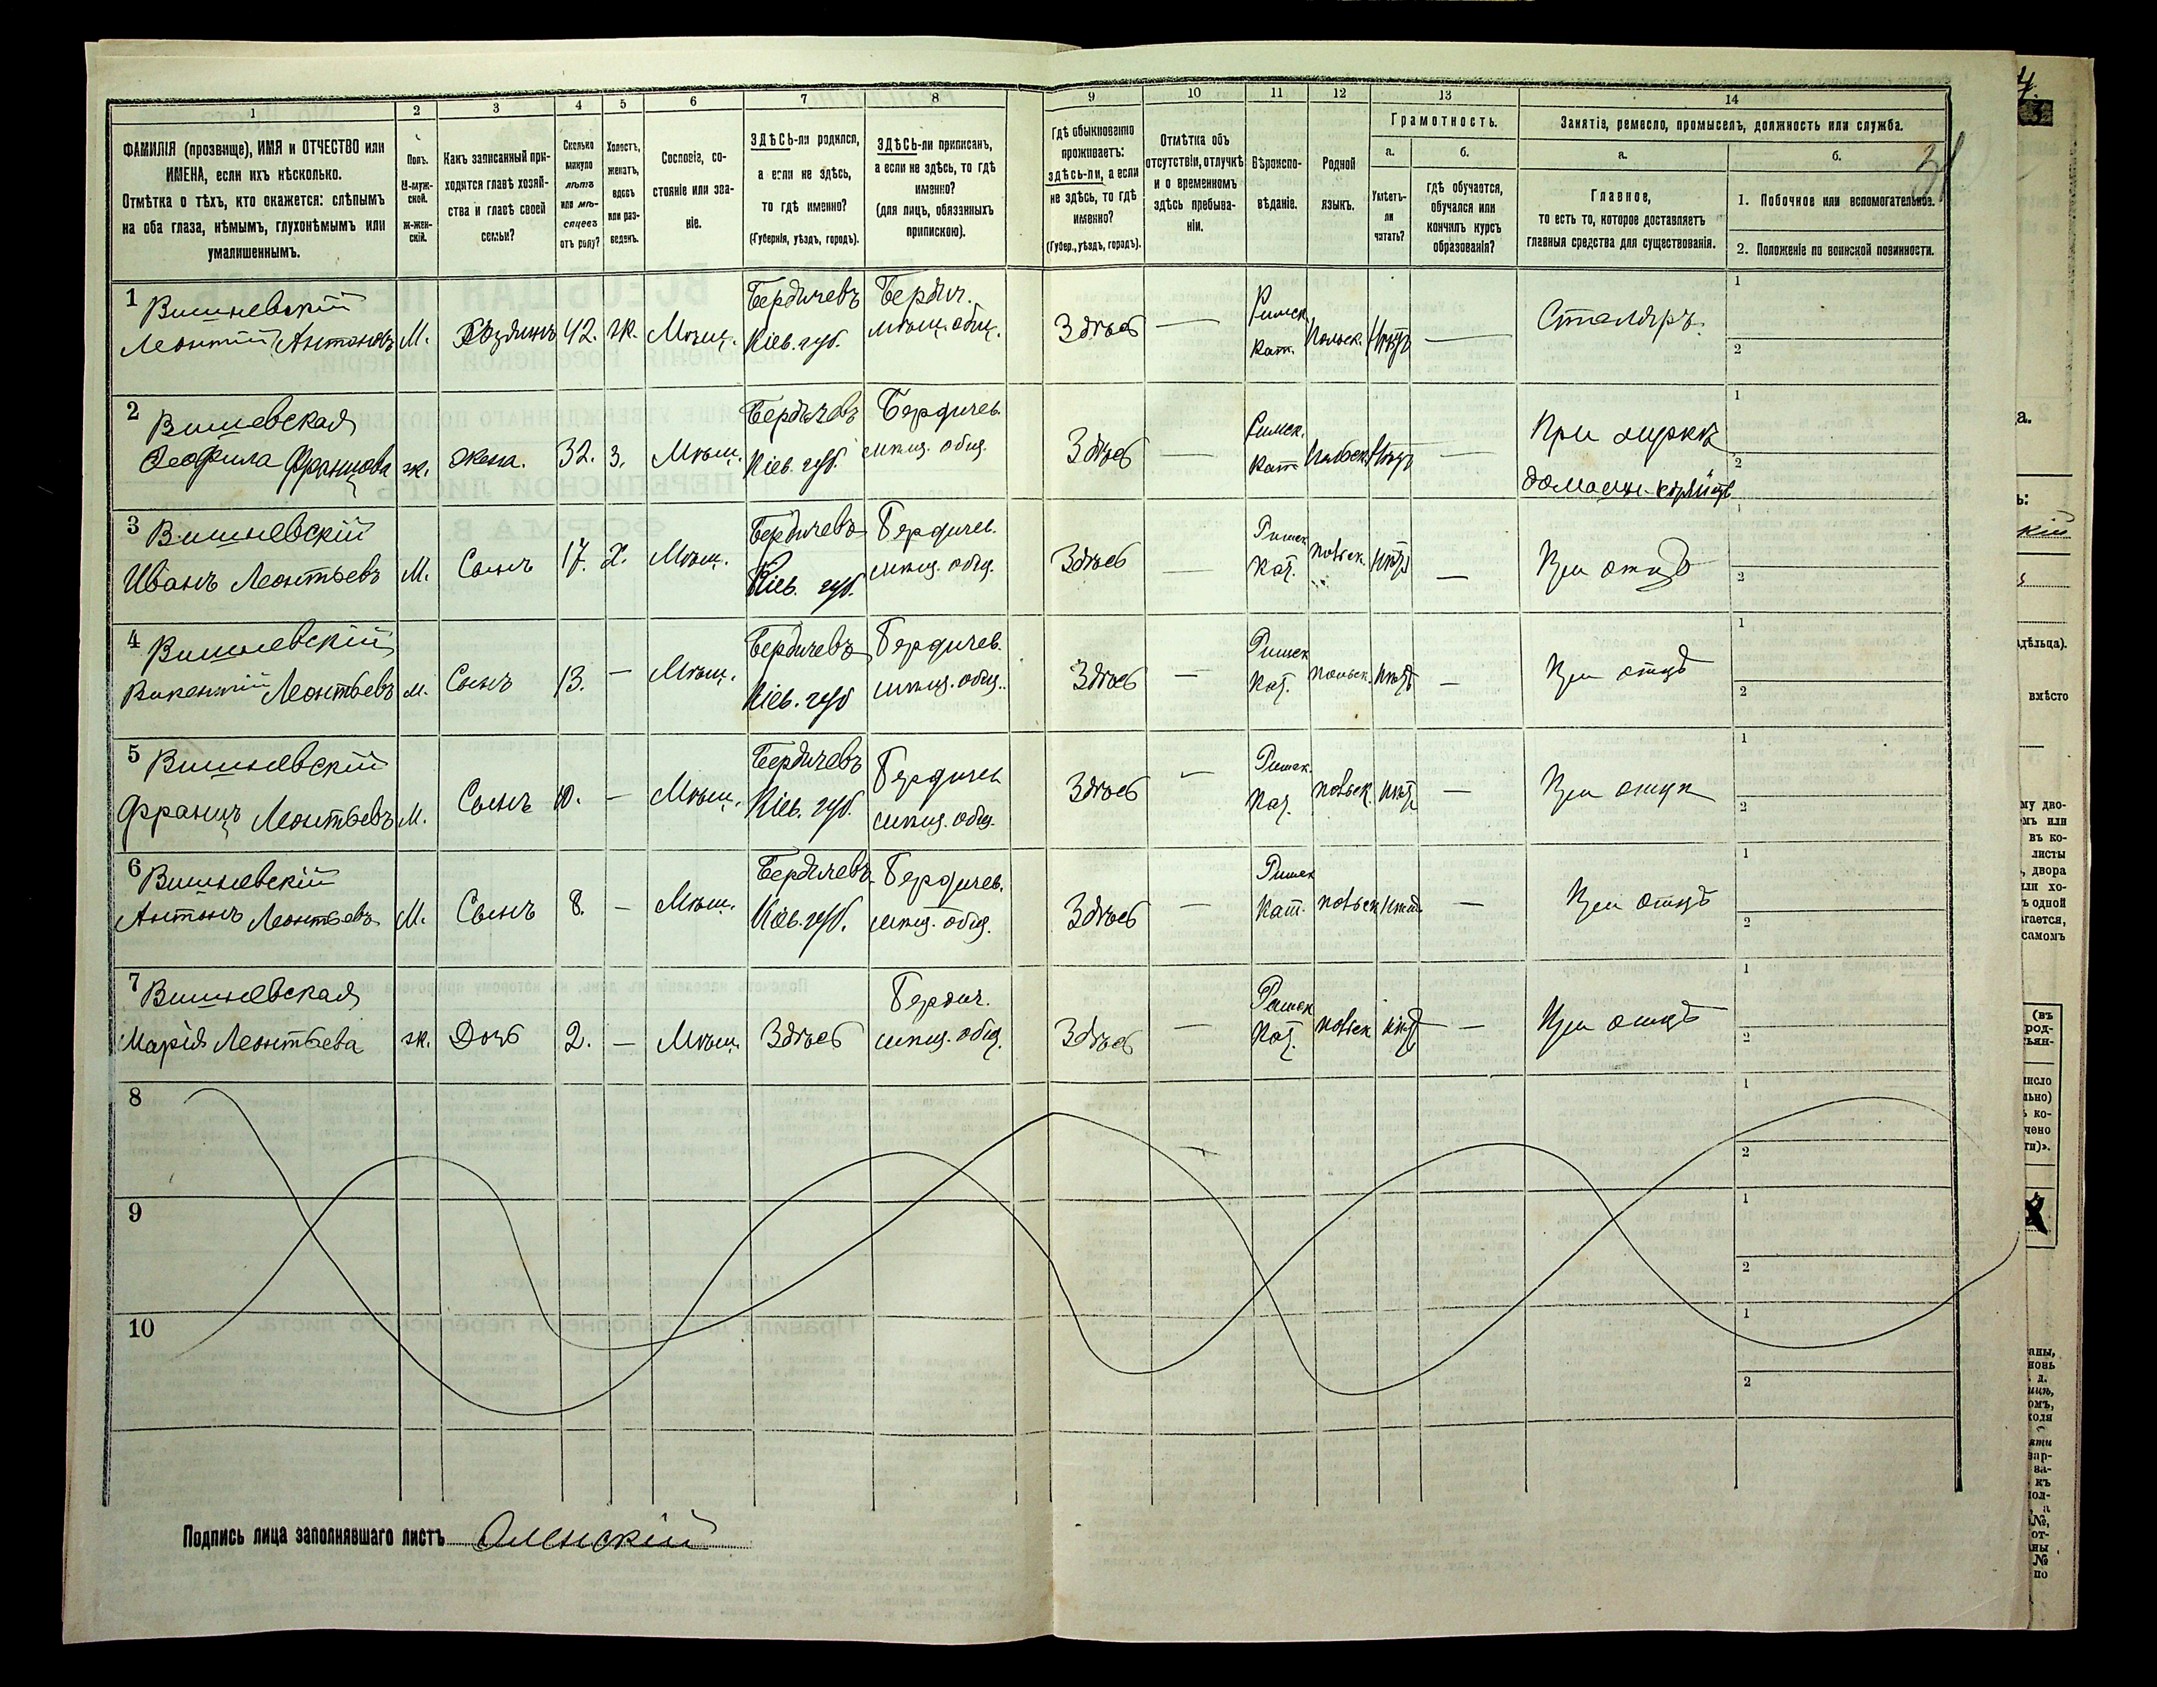 1 2 3 4 5 6 7 8 9 10 11 12 13 14
ФАМИЛІЯ (прозвище), ИМЯ и ОТЧЕСТВО или
ИМЕНА, если ихъ нѣсколько.
Отмѣтка о тѣхъ, кто окажется: слѣпымъ
на оба глаза, нѣмымъ, глухонѣмымъ или
умалишеннымъ.
Полъ.
М-муж-
ской.
Ж-жен-
скій.
Какъ записанный при-
ходится главѣ хозяй-
ства и главѣ своей
семьи?
Сколько
минуло
лѣтъ
или мѣ-
сяцевъ
отъ роду?
Холостъ,
женатъ,
вдовъ
или раз-
веденъ.
Сословіе, со-
стояніе или зва-
ніе.
ЗДѢСЬ-ли родился,
а если не здѣсь,
то гдѣ именно?
(Губернія, уѣздъ, городъ).
ЗДѢСЬ-ли приписанъ,
а если не здѣсь, то гдѣ
именно?
(для лицъ, обязанныхъ
припискою).
Гдѣ обыкновенно
проживаетъ:
здѣсь-ли, а если
не здѣсь, то гдѣ
именно?
(Губер., уѣздъ, городъ).
Отмѣтка объ
отсутствіи, отлучкѣ
и о временномъ
здѣсь пребыва-
ніи.
Вѣроиспо-
вѣданіе.
Родной
языкъ.
Грамотность.
а. б.
Умѣетъ-
ли
читать?
гдѣ обучается,
обучался или
кончилъ курсъ
образованія?
Занятіе, ремесло, промыселъ, должность или служба.
а. б.
Главное,
то есть то, которое доставляетъ
главныя средства для существованія.
1. Побочное или вспомогательное.
2. Положеніе по воинской повинности.
1 Вишневскій Бердичевъ Бердич. Римск. 1
Леонтій Антоновъ М. Хозяинъ 42. ж. Мѣщ. Кіев. губ. мѣщ. общ. Здѣсь — Кат. Польск. Нѣтъ — Столяръ. 2
2 Вишевская Бердичевъ Бердичев. Римск. При мужѣ 1
Теофила Францова ж. жена. 32. з. Мѣщ. Кіев. губ. мѣщ. общ. Здѣсь — Кат. Польск. Нѣтъ — 2
3 Вишневскій Бердичевъ Бердичев. Римск 1
Иванъ Леонтьевъ М. Сынъ 17. х. Мѣщ. Кіев. губ. мѣщ. общ. Здѣсь — Кат. польск. Нѣтъ — При отцѣ 2
4 Вишневскій Бердичевъ Бердичев. Римск 1
Викентій Леонтьевъ м. Сынъ 13. — Мѣщ. Кіев. губ мѣщ. общ. Здѣсь — Кат. польск. Нѣтъ — При отцѣ 2
5 Вишневскій Бердичевъ Бердичев Римск. 1
Францъ Леонтьевъ М. Сынъ 10. — Мѣщ. Кіев. губ. мѣщ. общ. Здѣсь — Кат. польск. нѣтъ — При отцѣ 2
6 Вишневскій Бердичевъ Бердичев. Римск 1
Антонъ Леонтьевъ М. Сынъ 8. — Мѣщ. Кіев. губ. мѣщ. общ. Здѣсь — Кат. польск нѣтъ — При отцѣ 2
7 Вишневская Бердич. Римск 1
Марія Леонтьева ж. Дочь 2. — Мѣщ. Здѣсь мѣщ. общ. Здѣсь — Кат. польск нѣтъ — При отцѣ 2
8 1
2
9 1
2
10 1
2
Подпись лица заполнявшаго листъ